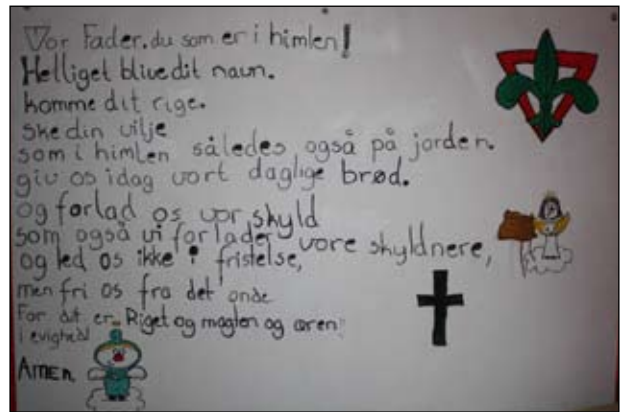 Vor Fader. du som er i himlen!
Helliget blive dit navn.
komme dit rige.
ske din vilje
som i himlen således også på jorden.
giv os idag vort daglige brød.
og forlad os vor skyld
som også vi forlader vore skyldnere,
og led os ikke i fristelse,
men fri os fra det onde
For dit er Riget og magten og æren
i evighed
Amen